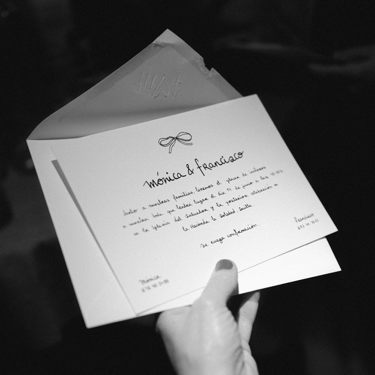 mónica & francisco
Junto a nuestras familias tenemos el placer de invitaros
a nuestra boda, que tendrá lugar el día 11 de junio a las
en la Iglesia del Salvador y la posterior celebración a
la Hacienda la Soledad Sevilla
Se ruega confirmación
Mónica
Francisco